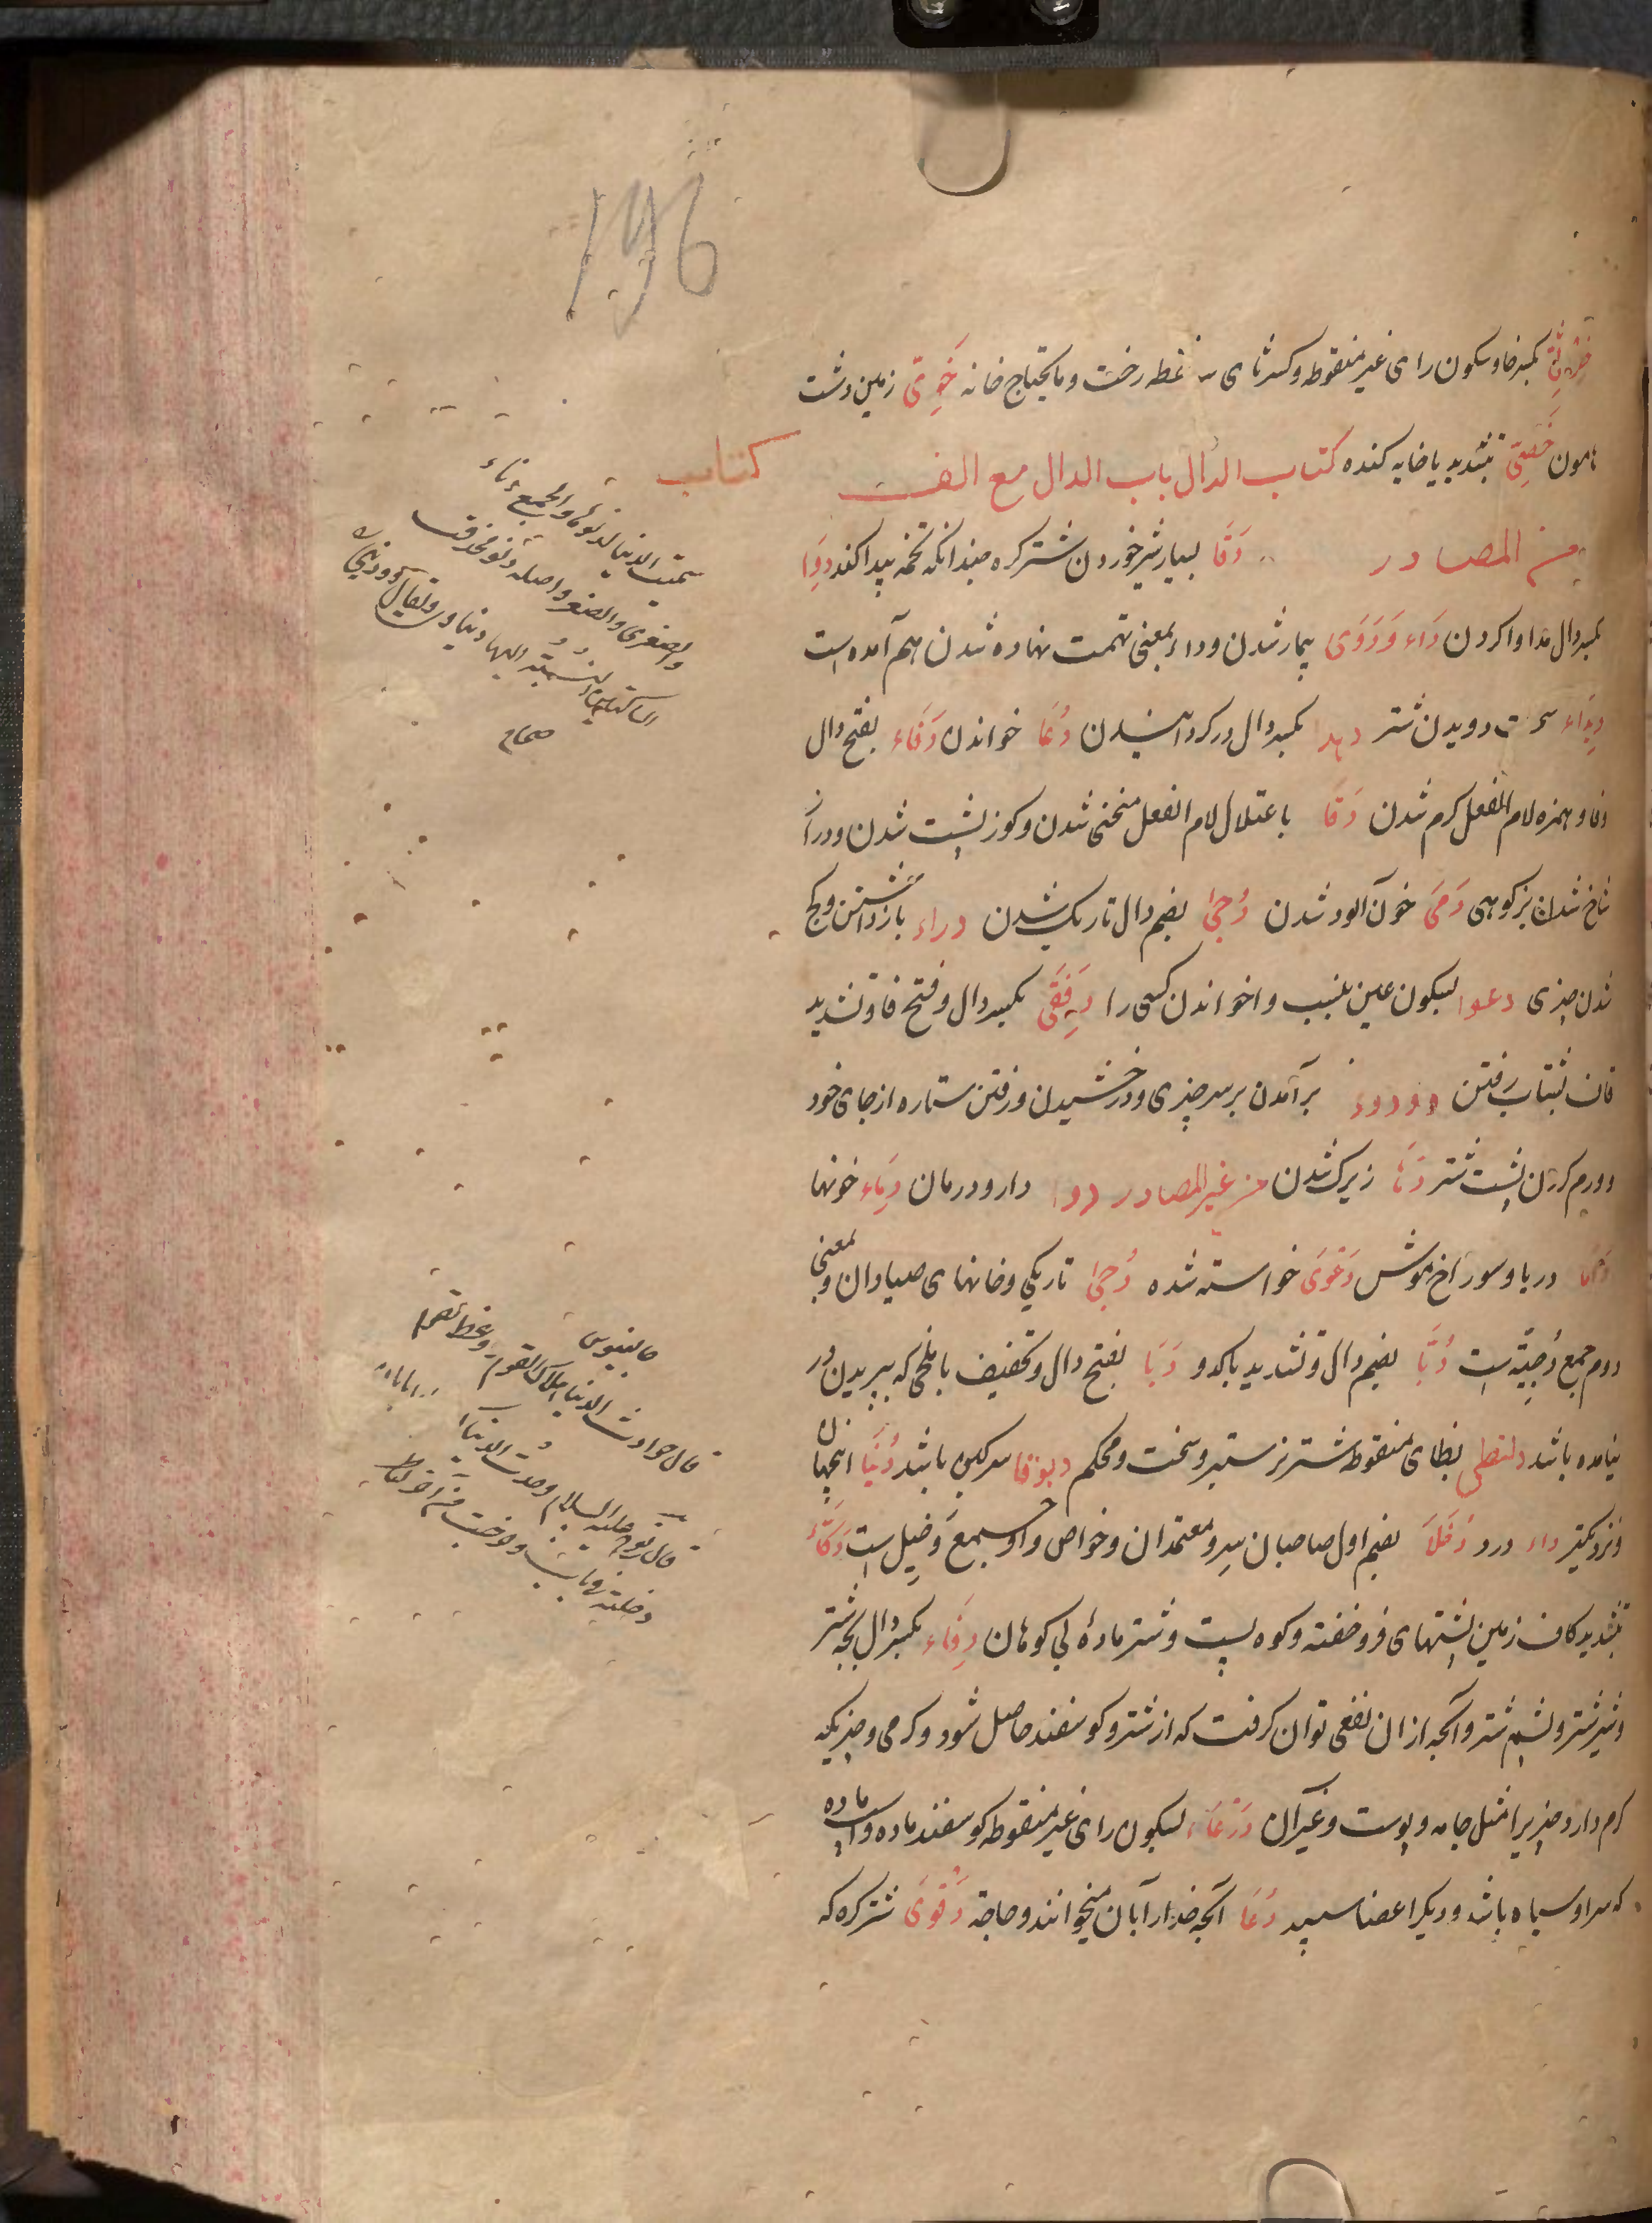 196
خِرْثِیّ بکسر خا و سکون رای غیر منقوطه و کسر ثای سه نقطه رخت و مایحتاج خانه خَوِیّ زمین دشت
هامون خَصِیّ بتشدید یا خایه کنده کتاب الدال باب الدال مع الف
کتاب
من المصادر دَقَا بسیار شیر خوردن شتر کره چندانکه تخمه پیدا کند دِوَا
بکسر دال مداوا کردن دَاء وَ دَوَی بیمار شدن و داء بمعنی تهمت نهاده شدن هم آمده است
دِیدَاء سخت دویدن شتر دهدا بکسر دال درگردانیدن دُعَا خواندن دَفَاء بفتح دال
و فا و همزه لام الفعل گرم شدن دَفَا باعتلال لام الفعل منحنی شدن و کوزپشت شدن و دراز
شاخ شدن بز کوهی دَمَی خون آلود شدن دُجیٰ بضم دال تاریک شدن دراء بازداشتن و کج
شدن چیزی دعوا بسکون عین بنسب واخواندن کسی را دِفَقَّی بکسر دال و فتح فا و تشدید
قاف بشتاب رفتن برآمدن بر سر چیزی و درخشیدن و رفتن ستاره از جای خود
و ورم کردن پشت شتر دَهَا زیرک شدن من غیر المصادر دوا دارو و درمان دِمَاء خونها
دریا و سوراخ موش دَعْوَی خواسته شده دُجیٰ تاریکی و خانهای صیادان و بمعنی
دوم جمع دُجیَّه است دُبَّا بضم دال و تشدید با کدو دَبَا بفتح دال و تخفیف با ملخی که بپریدن در
نیامده باشد دلنظی بظای منقوطه شتر نر ستبر و سخت و محکم دبوقا سرگین باشد دُنْیَا این جهان
و نزدیکتر داء درد دُخَلَا بضم اول صاحبان سر و معتمدان و خواص و او جمع دَخِیل است دَکَّاءُ
بتشدید کاف زمین پشتهای فروخفته و کوه پست و شتر مادهٔ بی کوهان دِفَاء بکسر دال بچه شتر
و شیر شتر و پشم شتر و آنچه از آن نفعی توان گرفت که از شتر و گوسفند حاصل شود و گرمی و چیزیکه
گرم دارد چیزیرا مثل جامه و پوست و غیر آن دَرْعَاء بسکون رای غیر منقوطه گوسفند ماده و اسپ ماده
که سر او سیاه باشد و دیگر اعضا سپید دُعَا آنچه خدا را بآن میخوانند و حاجة دَقْوَی شتر کره که
سمیت الدنیا لدنوها والجمع دناء
الیها دنیاوی ویقال دنیوی
صحاح
جالینوس
قال حوادث الدنیا
قال نوح علیه السلام وجدت الدنیا